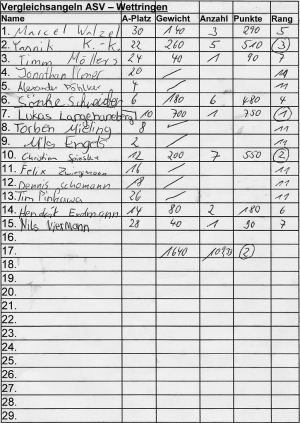 Vergleichsangeln ASV – Wettringen
Name A-Platz Gewicht Anzahl Punkte Rang
1. Marcel Watzel 30 140 3 290 5
2. Yannik K.-K. 22 260 5 510 3
3. Timm Möllers 24 40 1 90 7
4. Jonathan 20 / 11
5. Alexander 4 / 11
6. Sönke Schneider 6 180 6 480 4
7. Lukas 10 700 1 750 1
8. Torben 8 / 11
9. Engels 2 / 11
10. Christian 12 200 7 550 2
11. Felix 16 / 11
12. Dennis Schomann 18 / 11
13. Tim 26 / 11
14. Erdmann 14 80 2 180 6
15. Nils 28 40 1 90 7
16.
17. 1640 2
18.
19.
20.
21.
22.
23.
24.
25.
26.
27.
28.
29.